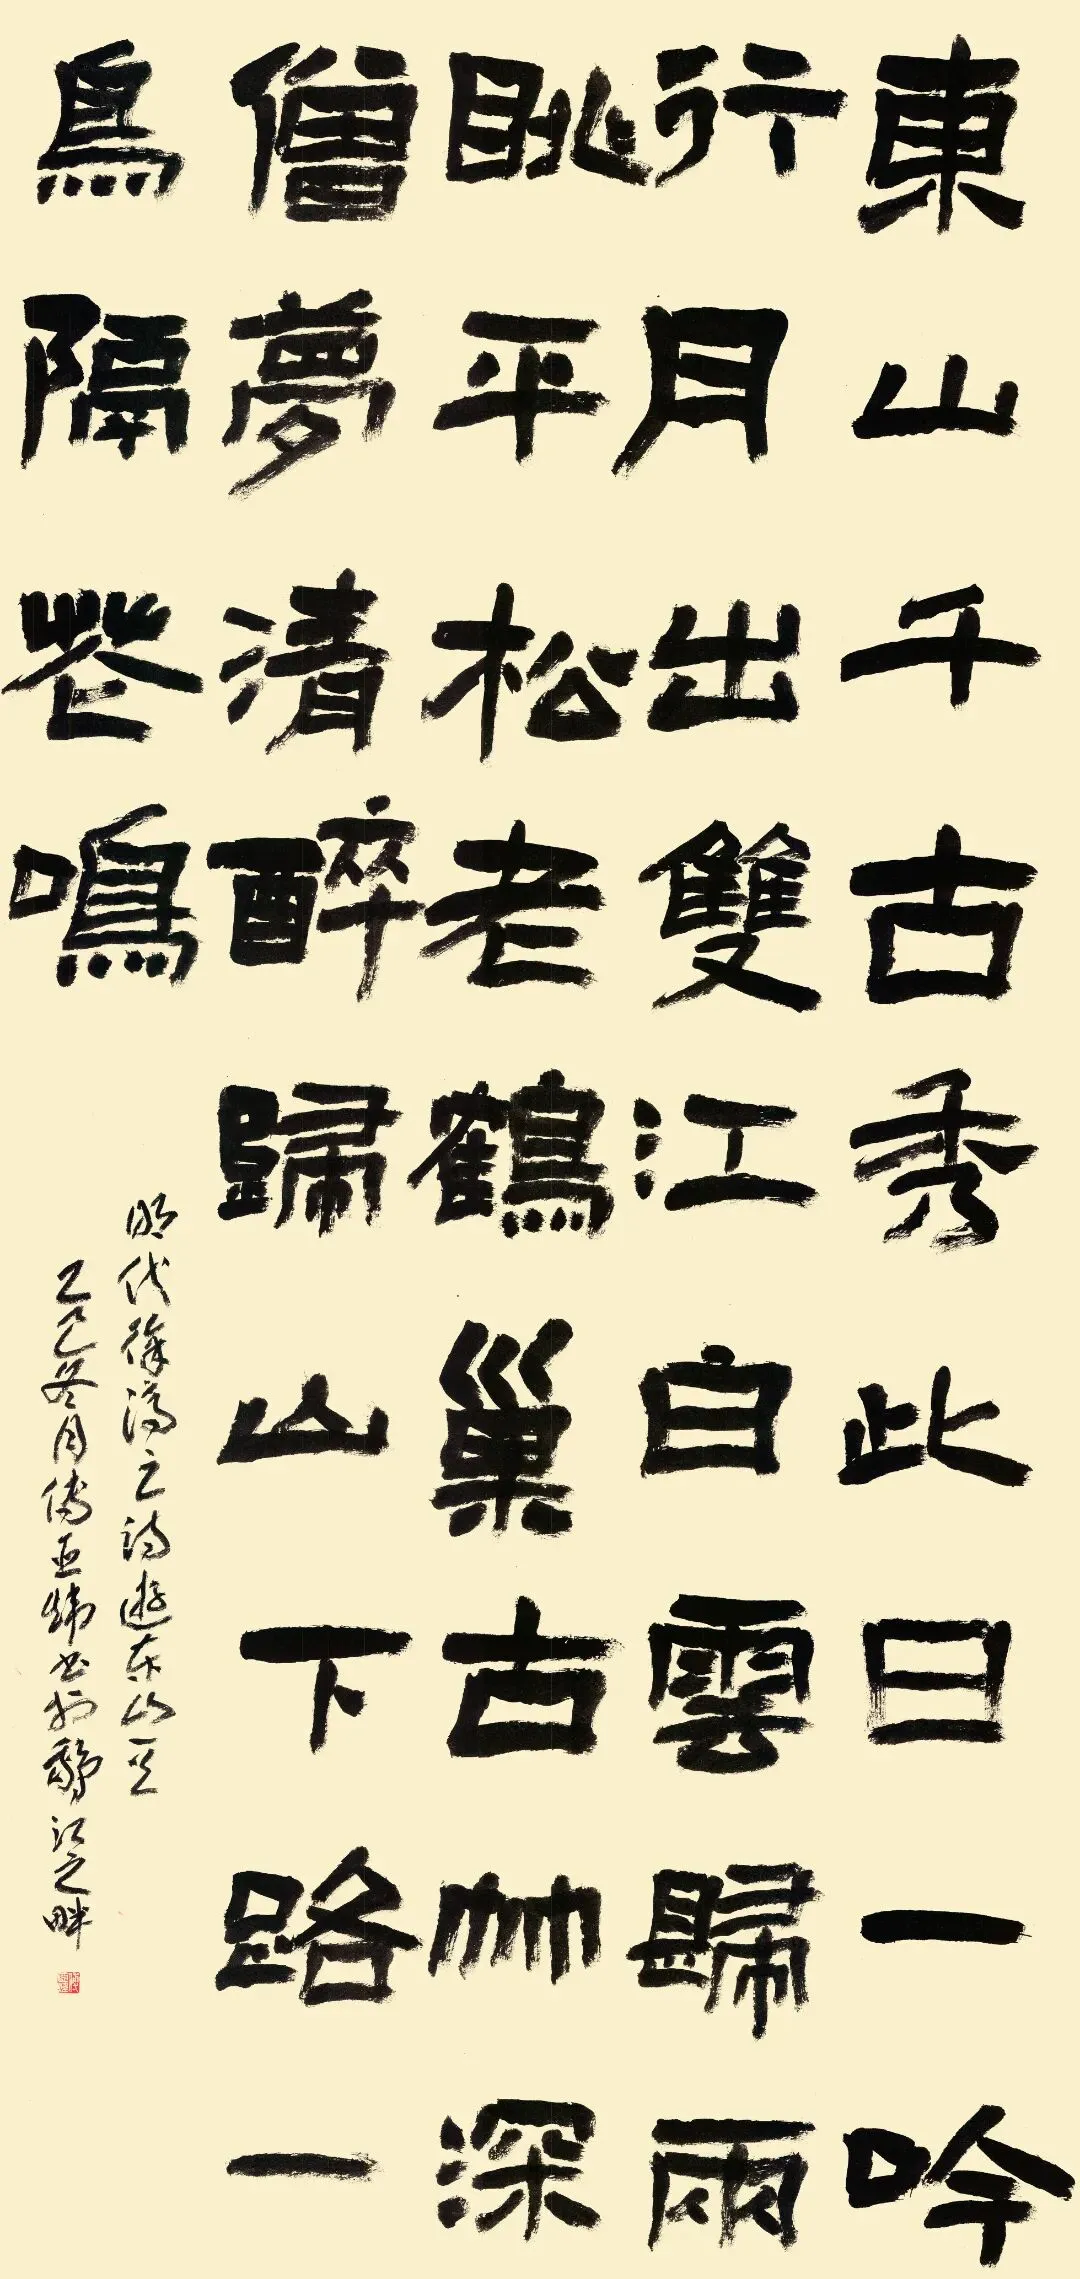 東山千古秀此日一吟
行月出雙江白雲歸兩
眺平松老鶴巢古竹深
僧夢清醉歸山下路一
鳥隔花鳴
明代徐渭之詩遊東山一首
乙巳冬月傅亚炜書於江之畔